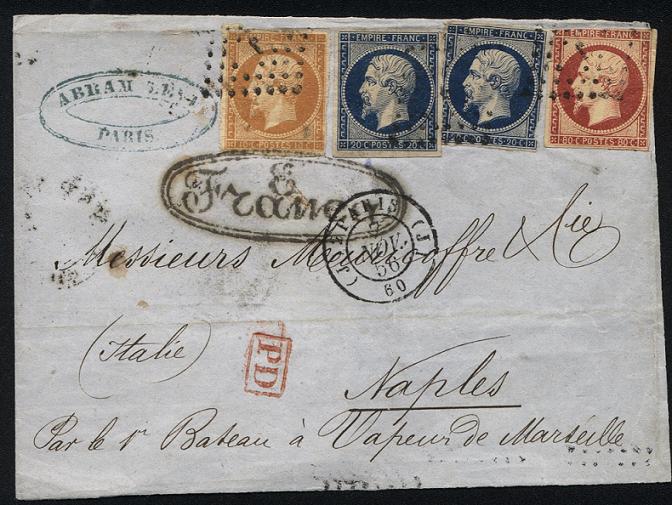 ABRAM
PARIS
EMPIRE · FRANC ·
10 C · POSTES · 10 C ·
EMPIRE · FRANC ·
20 C · POSTES · 20 C ·
EMPIRE · FRANC ·
20 C · POSTES · 20 C ·
EMPIRE · FRANC ·
80 C · POSTES · 80 C ·
PARIS
NOV.
56
60
Messieurs Meuricoffre & Cie
(Italie)
PD
Naples
Par le 1r Bateau à Vapeur de Marseille